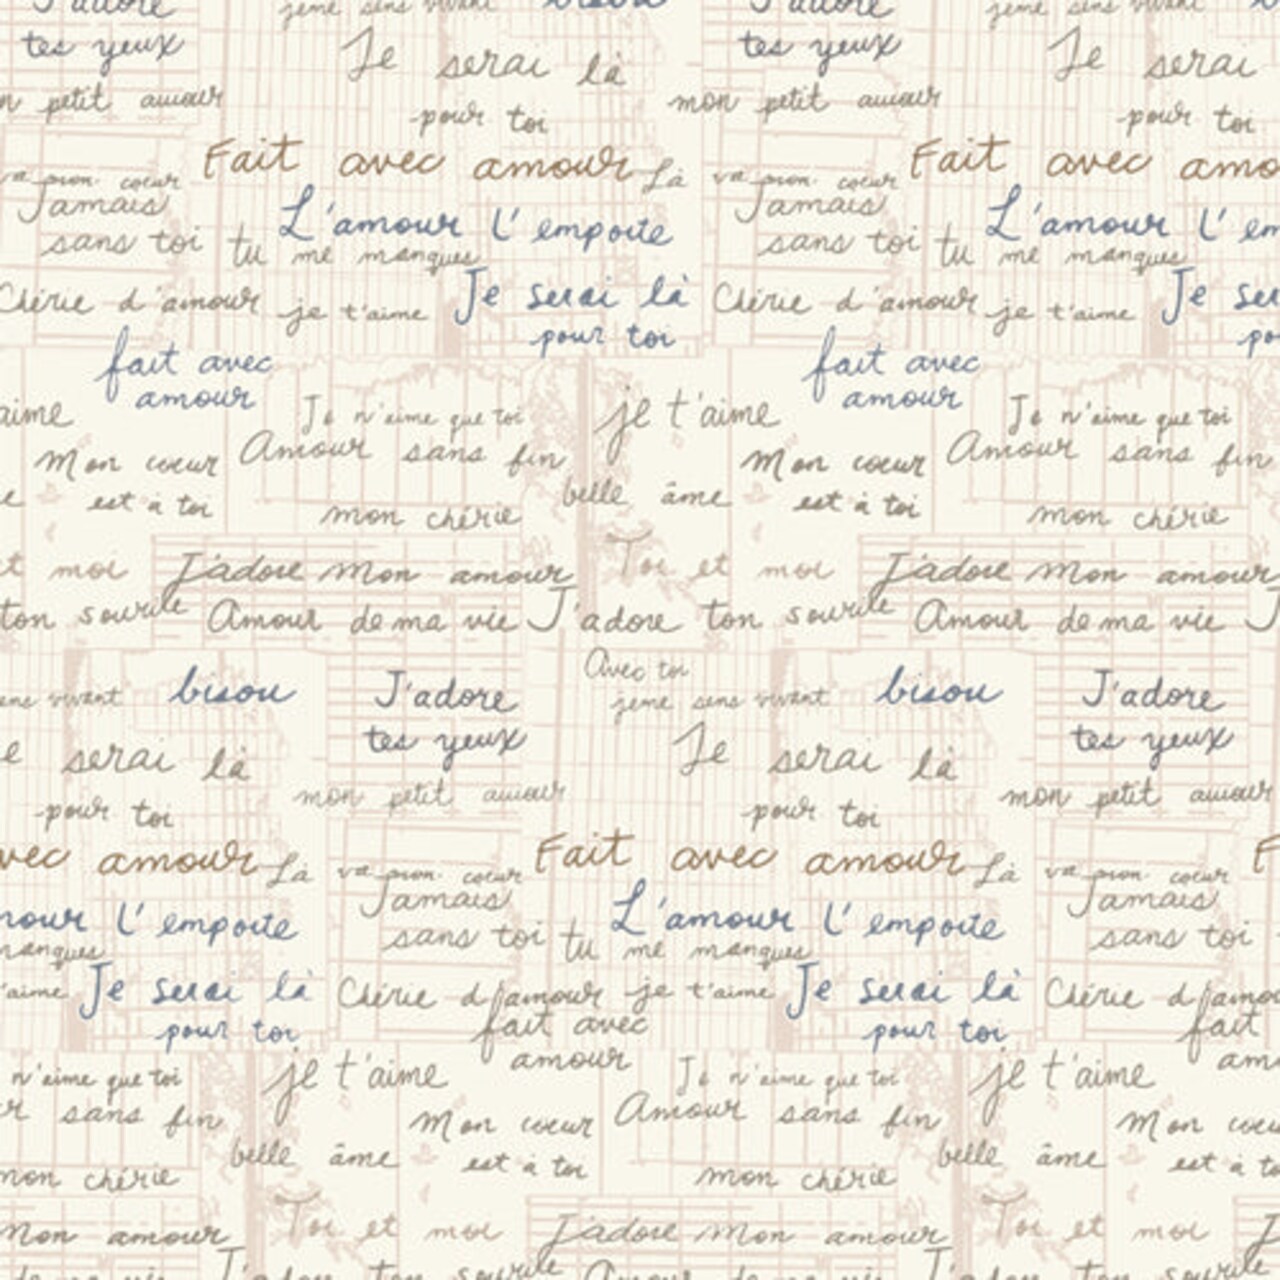 J'adore
jeme sens vivant
bisou
J'adore
jeme sens vivant
tes yeux
Je serai là
tes yeux
Je serai
petit amour
pour toi
mon petit amour
pour toi
Fait avec amour
Là
Fait avec amo
va mon coeur
va mon coeur
Jamais
L'amour l'emporte
Jamais
L'amour l'em
sans toi
tu me manques
sans toi
tu me manques
Chérie d'amour
je t'aime
Je serai là
Chérie d'amour
je t'aime
Je ser
pour toi
po
fait avec
fait avec
amour
amour
aime
Je n'aime que toi
je t'aime
Je n'aime que toi
Mon coeur
Amour sans fin
Mon coeur
Amour sans fin
e
est à toi
belle âme
est à toi
mon chérie
mon chérie
t moi
J'adore Mon amour
Toi et moi
J'adore Mon amour
ton sourile
Amour de ma vie
J'adore ton sourile
Amour de ma vie
J
Avec toi
ens vivant
bisou
J'adore
jeme sens vivant
bisou
J'adore
tes yeux
tes yeux
e serai là
Je serai là
mon petit amour
mon petit amour
pour toi
pour toi
vec amour
Là
Fait avec amour
Là
F
va mon coeur
va mon coeur
Jamais
Jamais
mour l'emporte
L'amour l'emporte
sans toi
sans toi
manques
tu me manques
'aime
Je serai là
Chérie d'amour
je t'aime
Je serai là
Chérie d'amour
pour toi
fait avec
pour toi
fait
amour
am
n'aime que toi
je t'aime
Je n'aime que toi
je t'aime
r sans fin
Mon coeur
Amour sans fin
Mon coeu
belle âme
est à toi
belle âme
est à to
mon chérie
mon chérie
Mon amour
Toi et moi
J'adore Mon amour
Toi et moi
J
de ma vie
J'adore ton sourile
Amour de ma vie
J'adore ton sourile